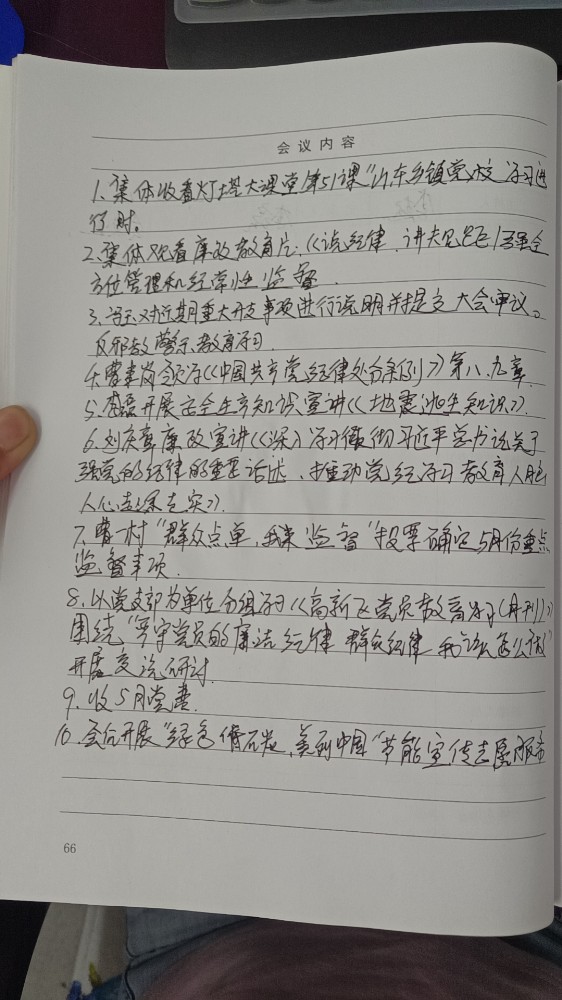 会议内容
1.集体收看灯塔大课堂第51课“山东乡镇党校 学习进
行时。
2.集体观看廉政教育片：《说纪律、讲 强全
方位管理和经常性监督
3. 对近期重大开支事项进行说明并提交大会审议。
反邪教警示教育学习.
4. 领学《中国共产党纪律处分条例》第八、九章.
5. 开展安全生产知识宣讲《地震逃生知识》.
6.刘庆章廉政宣讲《深入学习贯彻习近平总书记关于
强党的纪律的重要论述、推动党纪学习教育入脑
入心走深走实》.
7.曹一村“群众点单，我来监督”投票确定5月份重点
监督事项.
8.以党支部为单位分组学习《高新区党员教育学习(月刊)》
围绕“严守党员的廉洁纪律 群众纪律 我该怎么做”
开展交流研讨.
9.收5月党费.
10. 开展“绿色低碳，美丽中国”节能宣传志愿服务
66